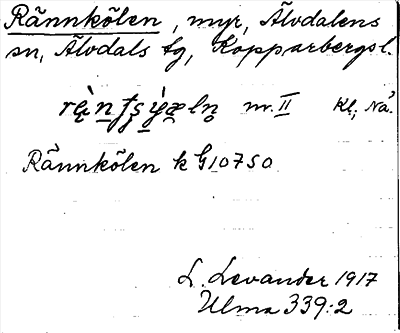 Rännkölen, myr, Älvdalens
sn, Älvdals tg, Kopparbergsl.
nr. II Kl, Nå.
Rännkölen k G10750
L. Levander 1917
Ulma 339:2